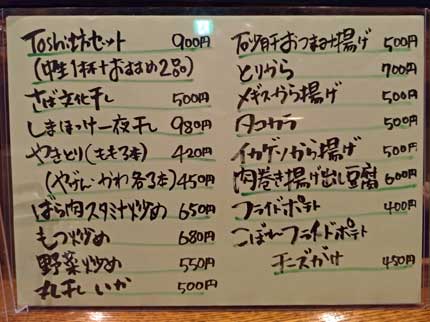 Toshi坊セット 900円
(中生1杯+おすすめ2品)
さば文化干し 500円
しまほっけ一夜干し 980円
やきとり(もも3本) 420円
(やげん・かわ各3本) 450円
ばら肉スタミナ炒め 650円
もつ炒め 680円
野菜炒め 550円
丸干しいか 500円
砂肝おつまみ揚げ 500円
とりから 700円
メギスから揚げ 500円
タコカラ 500円
イカゲソから揚げ 500円
肉巻き揚げ出し豆腐 600円
フライドポテト 400円
こぼれフライドポテト
チーズがけ 450円